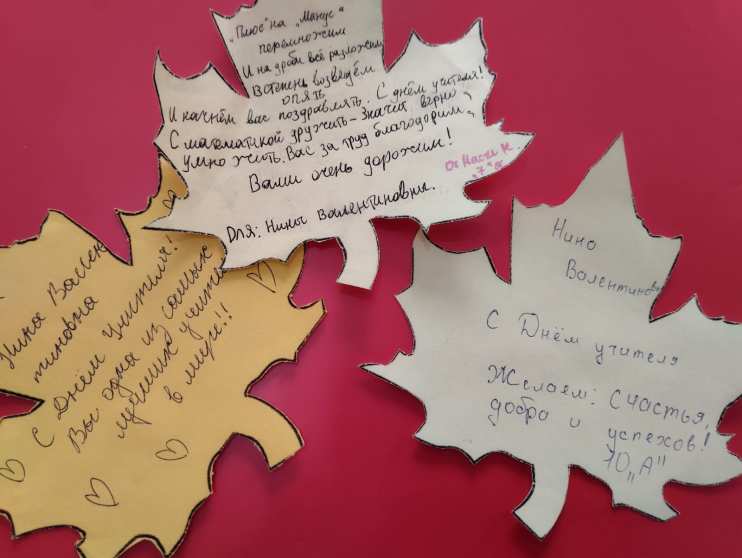 „Плюс" на „Минус"
перемножим
И на дроби всё разложим
В степень возведём
опять
И начнём вас поздравлять. С днём учителя!
С математикой дружить – значит верно,
умно жить. Вас за труд благодорим,
Вами очень дорожим!
Для: Нины Валентиновны.
От Насти К
„7"
Нина Вален
тиновна
С Днём учителя!
Вы одна из самых
лучших учите
в мире!!
Нина
Валентиновн
С Днём учителя
Желаем: Счастья,
добра и успехов!
10„А"